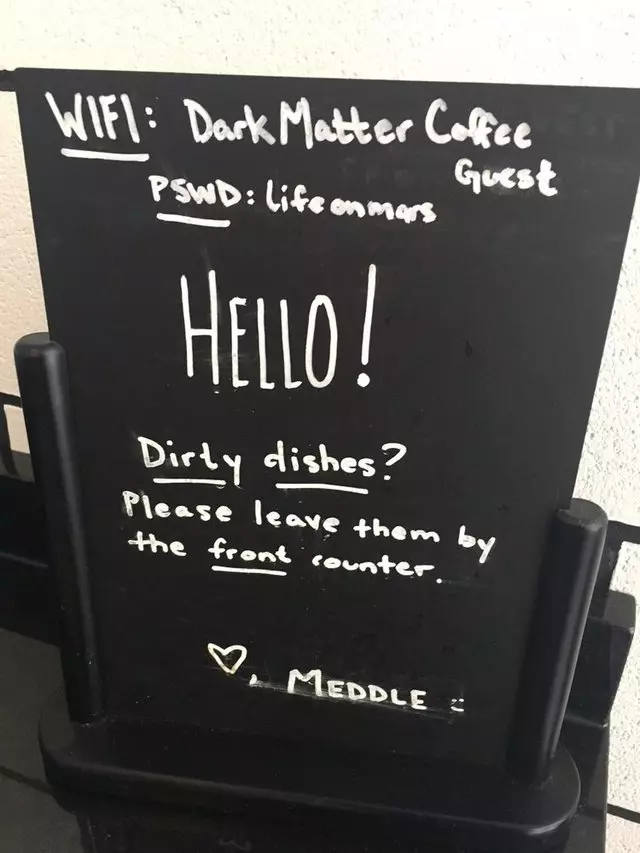 WIFI: Dark Matter Coffee
Guest
PSWD: lifeonmars
HELLO!
Dirty dishes?
Please leave them by
the front counter.
♡, MEDDLE :